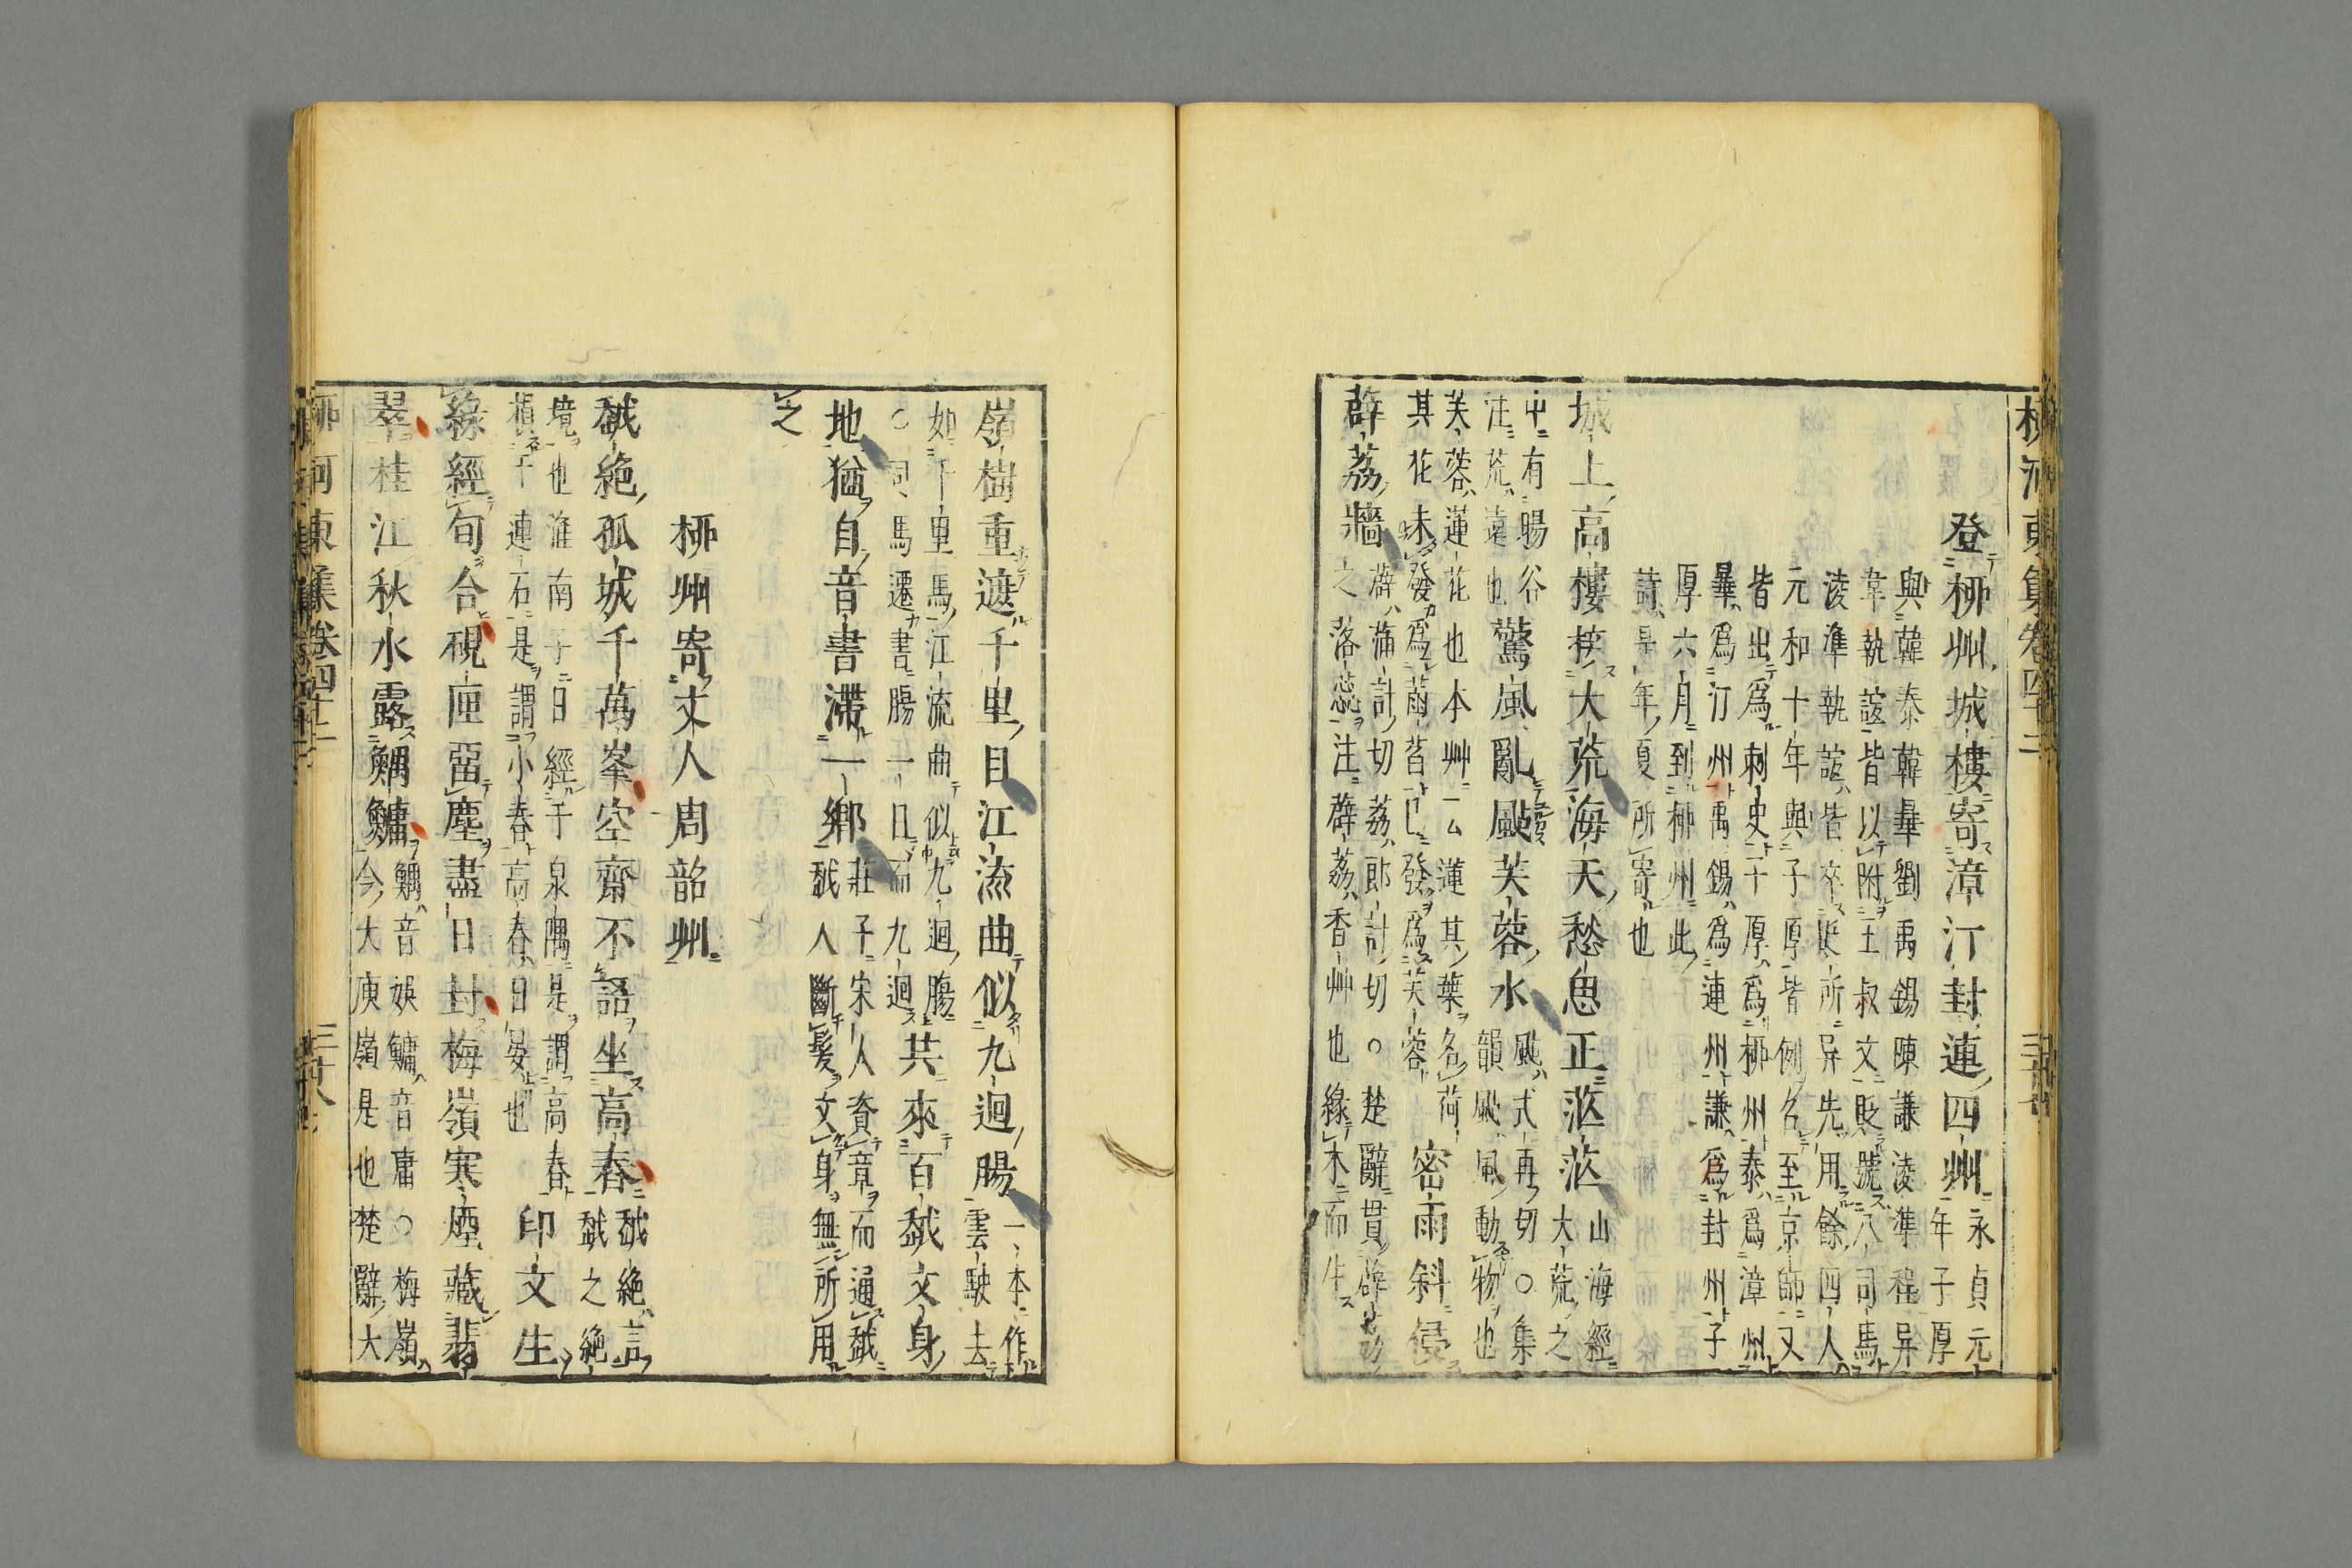 柳河東集卷四十二
登柳州城樓寄漳汀封連四州
永貞元
年子厚
與韓泰韓曅劉禹錫陳謙淩準程异
韋執誼皆以附王叔文貶號八司馬
淩準執誼皆卒貶所异先用餘四人
元和十年與子厚皆例名至京師又
皆出爲刺史子厚爲柳州泰爲漳州
曅爲汀州禹錫爲連州謙爲封州子
厚六月到柳州此
詩是年夏所寄也
城上高樓接大荒海天愁思正茫茫
山海經
大荒之
中有暘谷
注荒遠也
驚風亂颭芙蓉水
颭式再切○集
韻颭風動物也
芙蓉蓮花也本艸一云蓮其葉名荷
其花未發爲菡萏已發爲芙蓉
密雨斜侵
薜荔牆
薜蒲計切荔郎計切○楚辭貫薜荔
之落蕊注薜荔香艸也緣木而生
嶺樹重遮千里目江流曲似九迴腸
一本作
雲駛去
如千里馬江流曲似九迴腸
○司馬遷書腸一日而九迴
共來百越文身
地猶自音書滯一鄉
莊子宋人資章而通越
越人斷髮文身無所用
之
柳州寄丈人周韶州
越絶孤城千萬峯空齋不語坐高舂
越絶言
越之絶
境也淮南子曰經于泉隅是謂高舂
頓于連石是謂小舂高舂日晏也
印文生
綠經旬合硯匣留塵盡日封梅嶺寒煙藏翡
翠桂江秋水露鰅鱅
鰅音娛鱅音庸○梅嶺
今大庾嶺是也楚辭大
柳河東集卷四十二
三十八